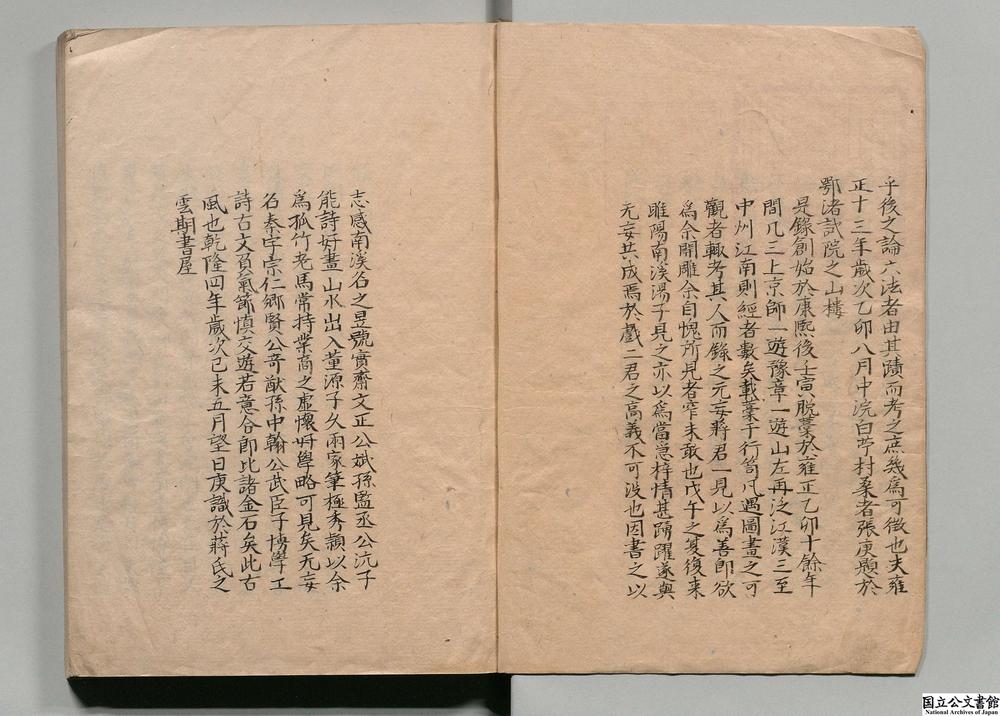 乎後之論六法者由其蹟而考之庶幾為可徴也夫雍
正十三年歲次乙卯八月中浣白苧村桑者張庚題於
鄂渚試院之山樓
是錄創始於康熙後壬寅脫藁於雍正乙卯十餘年
間凡三上京師一遊豫章一遊山左再泛江漢三至
中州江南則經者數矣載藁于行笥凡遇圖畫之可
觀者輙考其人而錄之元妄蔣君一見以為善即欲
為余開雕余自愧所見者窄未敢也戊午之夏復来
雎陽南溪湯子見之亦以為當急梓情甚踴躍遂與
无妄共成焉於戲二君之高義不可没也因書之以
志感南溪名之昱號實齋文正公斌孫監丞公沆子
能詩好畫山水出入董源子久兩家筆極秀穎以余
為孤竹老馬常持業商之虛懷好學略可見矣无妄
名泰字宗仁鄉賢公奇猷孫中翰公武臣子博學工
詩古文負氣節慎交遊若意合即比諸金石矣此古
風也乾隆四年歲次己未五月望日庚識於蔣氏之
雲期書屋
国立公文書館
National Archives of Japan